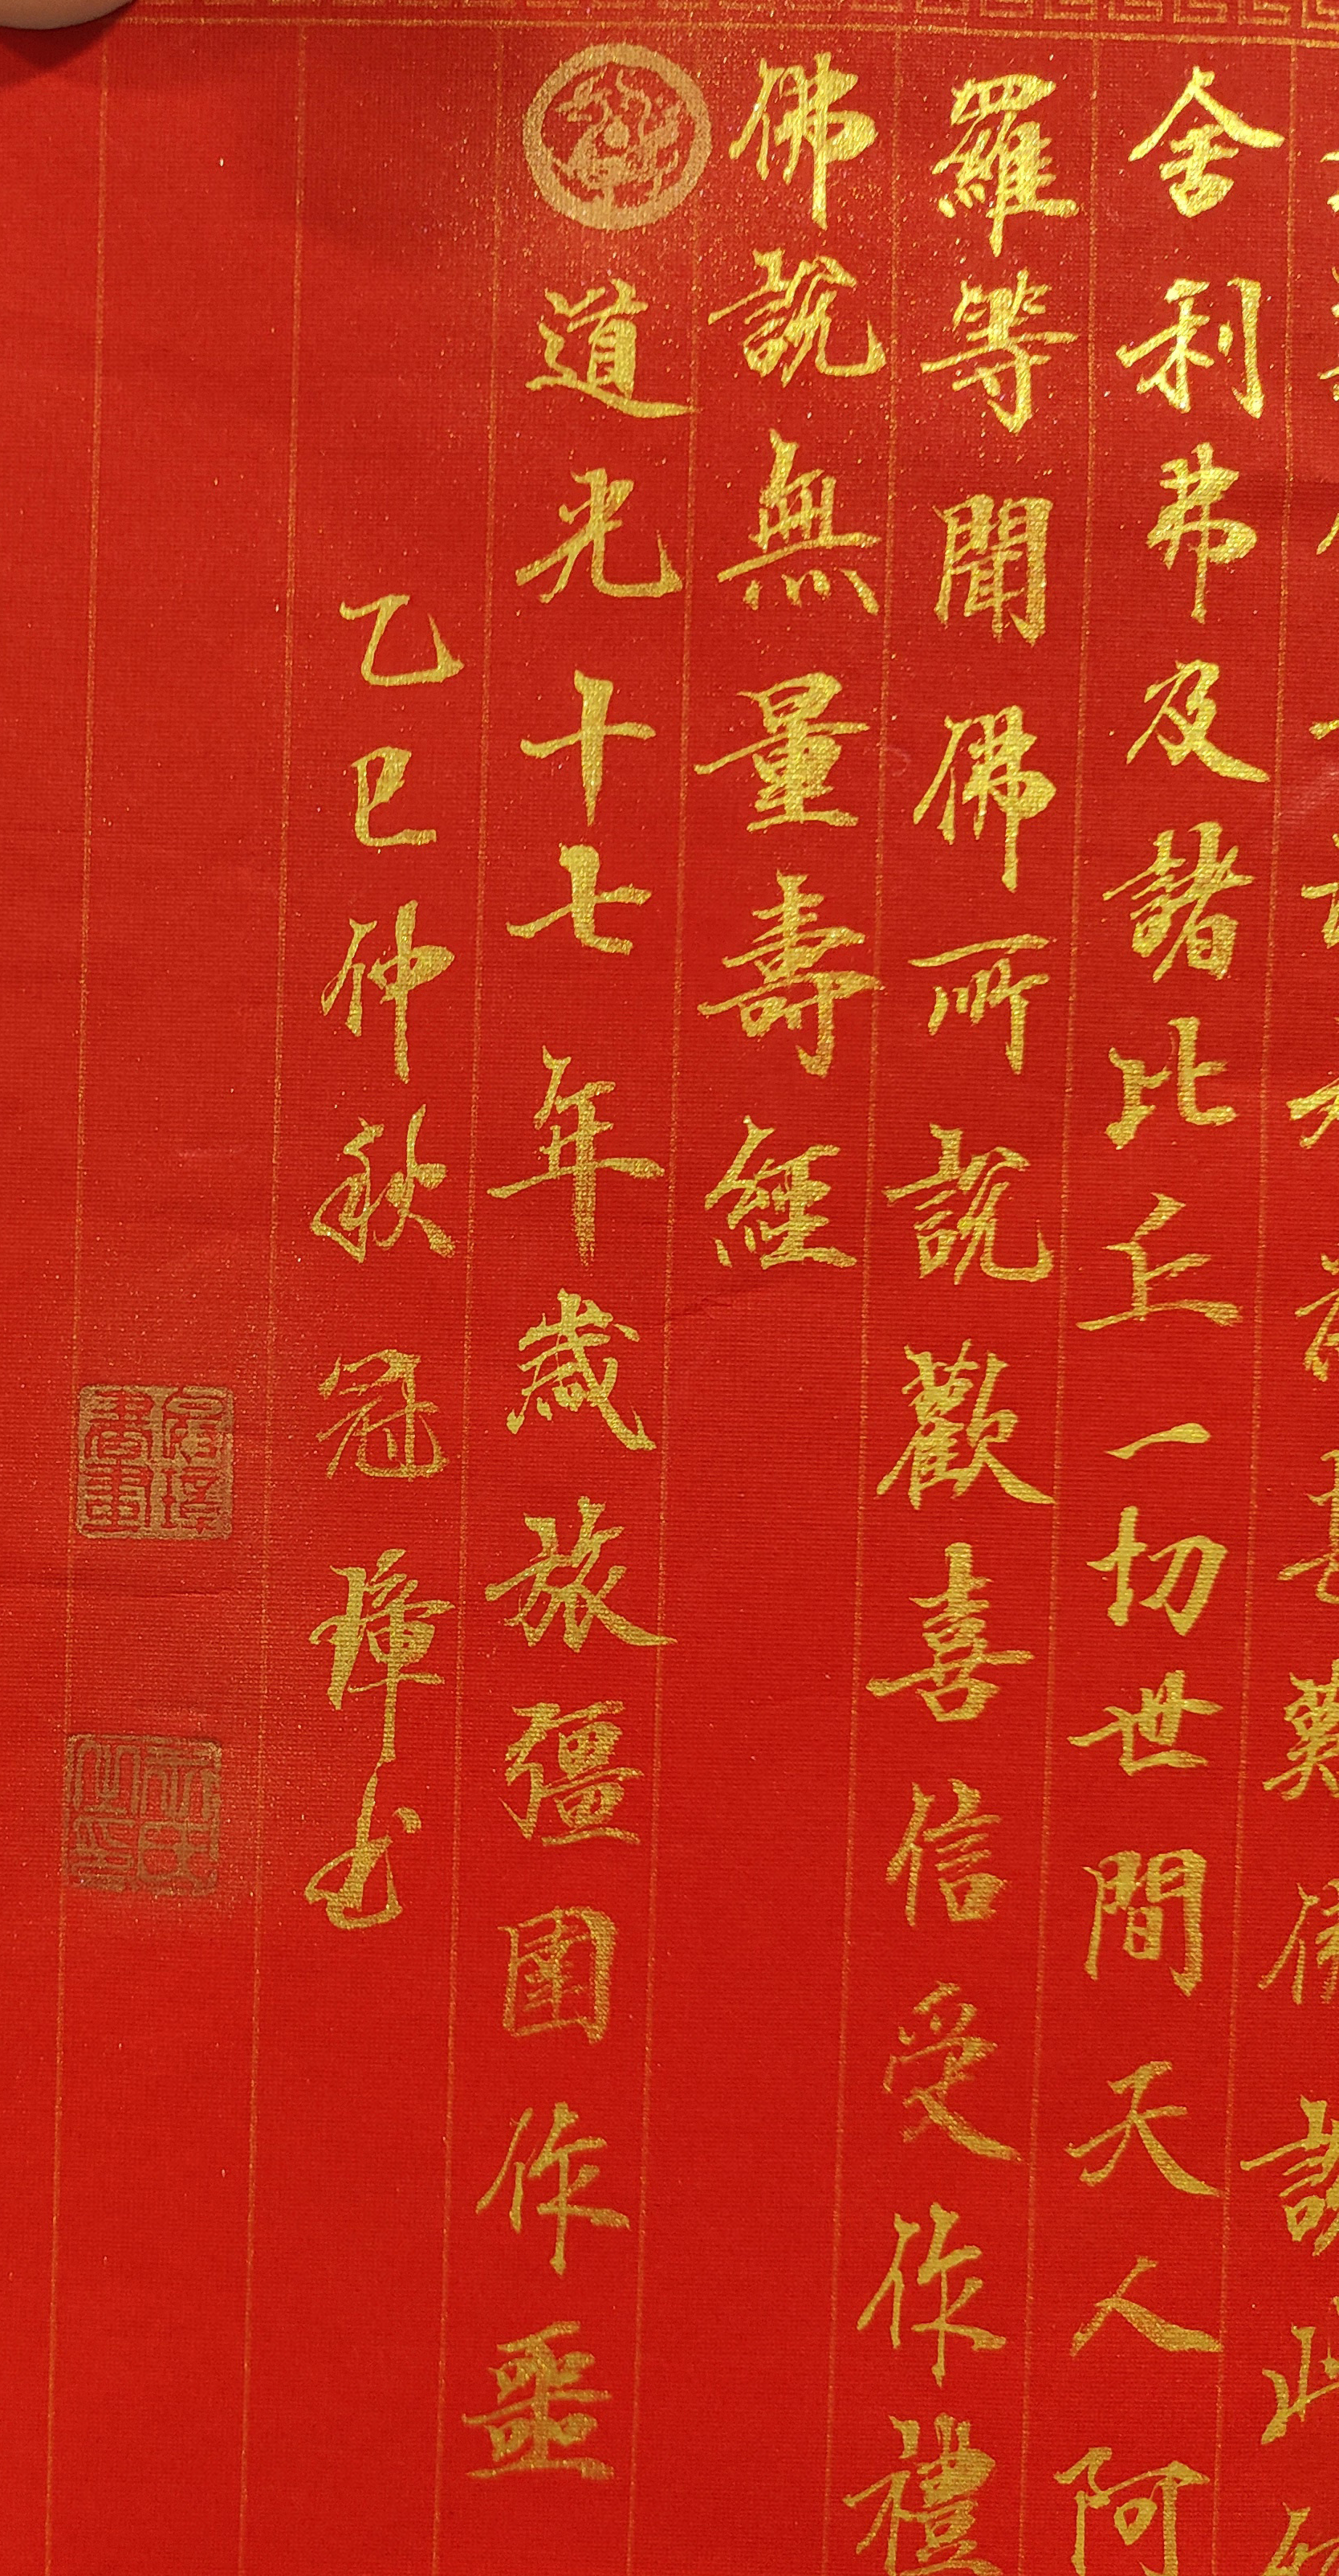 舍利弗及諸比丘一切世間天人阿
羅等聞佛所說歡喜信受作禮
佛說無量壽經
道光十七年歲旅疆圉作噩
乙巳仲秋冠瑋書